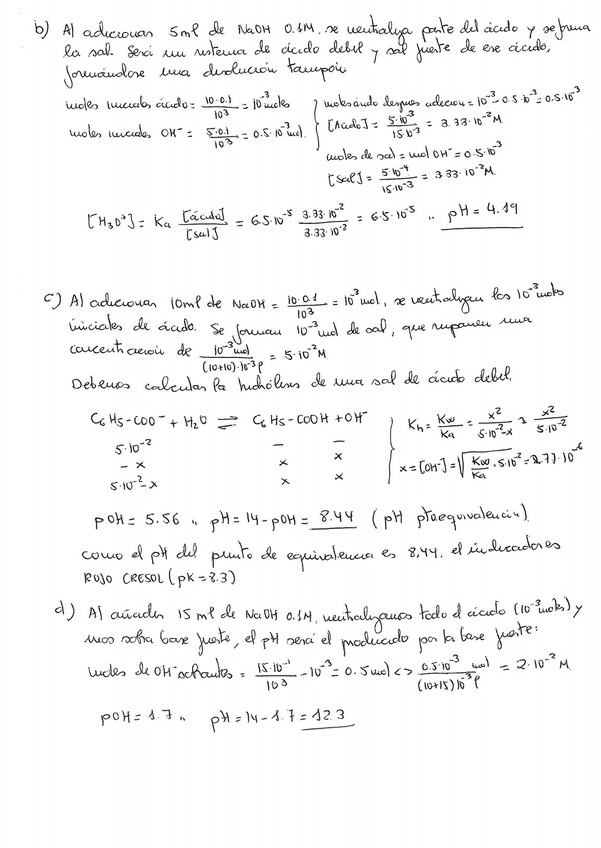 b) Al adicionar 5ml de NaOH 0.1M, se neutraliza parte del ácido y se forma
la sal. Será un sistema de ácido debil y sal fuerte de ese ácido,
formándose una disolución tampón
moles iniciales ácido = 10·0.1/10³ = 10⁻³ moles
moles iniciales OH⁻ = 5·0.1/10³ = 0.5·10⁻³ mol.
moles ácido despues adicion = 10⁻³ - 0.5·10⁻³ = 0.5·10⁻³
[Acido] = 5·10⁻³/15·10⁻³ = 3.33·10⁻² M
moles de sal = mol OH⁻ = 0.5·10⁻³
[Sal] = 5·10⁻⁴/15·10⁻³ = 3.33·10⁻² M.
[H₃O⁺] = Ka [ácido]/[sal] = 6.5·10⁻⁵ 3.33·10⁻²/3.33·10⁻² = 6.5·10⁻⁵ ,, pH = 4.19
c) Al adicionar 10ml de NaOH = 10·0.1/10³ = 10⁻³ mol, se neutralizan los 10⁻³ moles
iniciales de ácido. Se forman 10⁻³ mol de sal, que suponen una
concentración de 10⁻³ mol/(10+10)·10⁻³ l = 5·10⁻² M
Debemos calcular la hidrólisis de una sal de ácido debil.
C₆H₅-COO⁻ + H₂O ⇌ C₆H₅-COOH + OH⁻
5·10⁻² – –
- x x x
5·10⁻²-x x x
Kh = Kw/Ka = x²/5·10⁻²-x ≃ x²/5·10⁻²
x = [OH⁻] = √Kw/Ka · 5·10⁻² = 2.77·10⁻⁶
pOH = 5.56 ,, pH = 14 - pOH = 8.44 (pH pto equivalencia)
como el pH del punto de equivalencia es 8,44. el indicador es
ROJO CRESOL (pK = 8.3)
d) Al añadir 15 ml de NaOH 0.1M, neutralizamos todo el ácido (10⁻³ moles) y
nos sobra base fuerte, el pH será el producido por la base fuerte:
moles de OH⁻ sobrantes = 15·10⁻¹/10³ - 10⁻³ = 0.5 mol <> 0.5·10⁻³ mol/(10+15)10⁻³ l = 2·10⁻² M
pOH = 1.7 ,, pH = 14 - 1.7 = 12.3